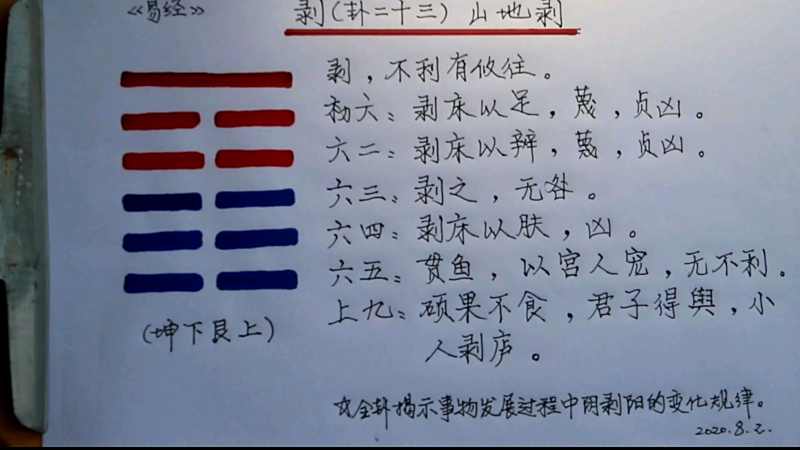 《易经》 剥(卦二十三)山地剥
剥，不利有攸往。
初六：剥床以足，蔑，贞凶。
六二：剥床以辨，蔑，贞凶。
六三：剥之，无咎。
六四：剥床以肤，凶。
六五：贯鱼，以宫人宠，无不利。
上九：硕果不食，君子得舆，小
人剥庐。
(坤下艮上)
☆全卦揭示事物发展过程中阴剥阳的变化规律。
2020.8.2.